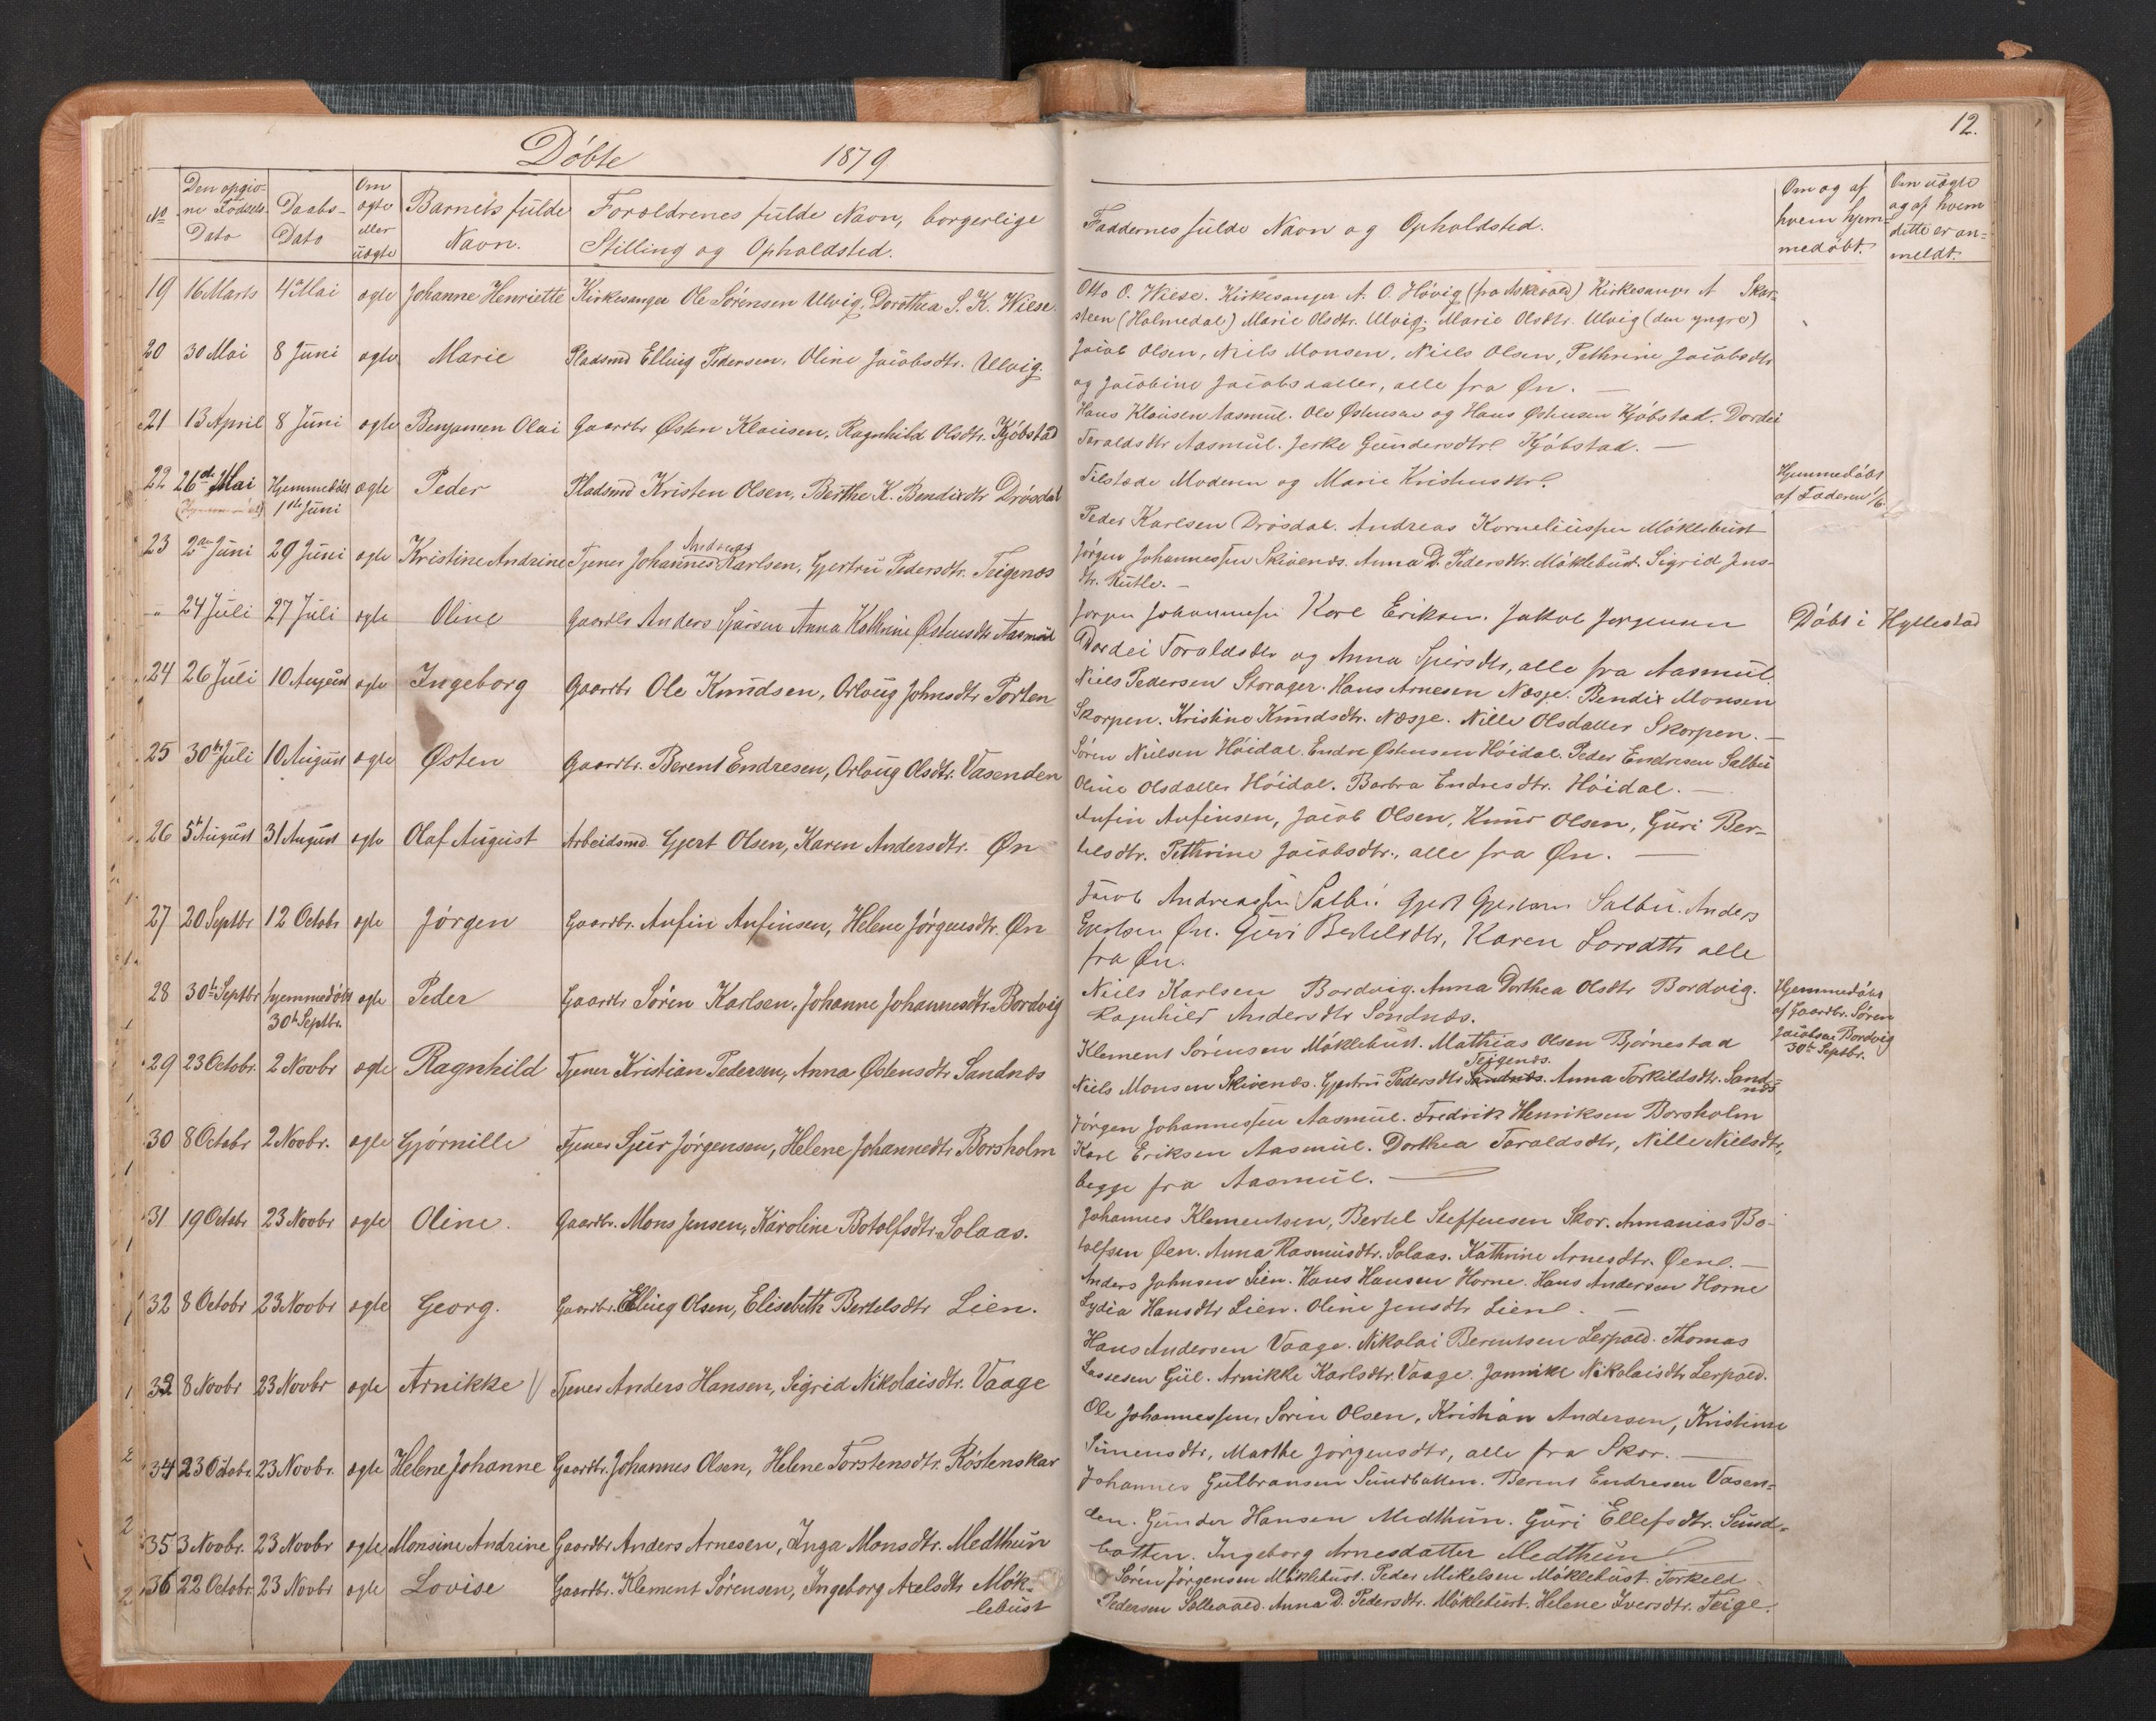 Döbte 1879
12.
No
Den opgiv-
ne Födsels-
Dato
Daabs-
Dato
Om
ægte
eller
uægte
Barnets fulde
Navn.
Forældrenes fulde Navn, borgerlige
Stilling og Opholdsted.
Faddernes fulde Navn og Opholdsted.
Om og af
hvem hjem-
medöbt.
Om uægte
og af hvem
dette er an-
meldt.
19 16 Marts 4 Mai ægte Johanne Henriette Kirkesanger Ole Sörensen Ulvig, Dorothea S. K. Wiese.
Otto O. Wiese. Kirkesanger A. O. Hövig (fra Askvold) Kirkesanger A Skar-
steen (Holmedal) Marie Olsdtr. Ulvig. Marie Olsdtr. Ulvig (den yngre)
20 30 Mai 8 Juni ægte Marie Pladsmd Elling Pedersen, Oline Jacobsdtr. Ulvig.
Jacob Olsen, Niels Monsen, Niels Olsen, Pethrine Jacobsdtr
og Jacobine Jacobsdatter, alle fra Øn. —
21 13 April 8 Juni ægte Benjamen Olai Gaardbr Østen Klausen, Ragnhild Olsdtr. Kjöbstad
Hans Klausen Aasmul. Ole Østensen og Hans Østensen Kjöbstad. Dordei
Taraldsdtr Aasmul. Jerke Gundersdtr Kjöbstad. —
22 26de Mai Hjemmedöbt 1ste Juni ægte Peder Pladsmd Kristen Olsen, Berthe K. Bendixdtr Drösdal
Tilstede Moderen og Marie Kristensdtr.
Hjemmedöbt
af Faderen 1/6.
23 2den Juni 29 Juni ægte Kristine Andrine Tjener Johannes Andreas Karlsen, Gjertru Pedersdtr. Teigenæs
Peder Karlsen Drösdal. Andreas Korneliussen Möklebust
Jörgen Johannessen Skivenæs. Anna D. Pedersdtr. Möklebust. Sigrid Jens-
dtr. Rutle. —
" 24 Juli 27 Juli ægte Oline Gaardbr Anders Sjursen Anna Kathrine Østensdtr Aasmul
Jörgen Johannessen Karl Eriksen. Jakob Jörgensen
Dordei Toraldsdtr og Anna Spirsdtr, alle fra Aasmul.
Döbt i Hyllestad
24 26 Juli 10 August ægte Ingeborg Gaardbr Ole Knudsen, Orloug Johnsdtr Porten
Niels Pedersen Storager. Hans Arnesen Næsje. Bendix Monsen
Skorpen. Kristine Knudsdtr. Næsje. Nille Olsdatter Skorpen. —
25 30te Juli 10 August ægte Østen Gaardbr. Berent Endresen, Orloug Olsdtr. Vasenden
Sören Nielsen Höidal. Endre Østensen Höidal. Peder Endresen Salbu
Oline Olsdatter Höidal. Barbra Endresdtr. Höidal. —
26 5te August 31 August ægte Olaf August Arbeidsmd. Gjert Olsen, Karen Andersdtr. Øn
Anfin Anfinsen, Jacob Olsen, Knud Olsen, Guri Ber-
telsdtr. Pethrine Jacobsdtr., alle fra Øn. —
27 20 Septbr 12 Octobr ægte Jörgen Gaardbr. Anfin Anfinsen, Helene Jörgensdtr. Øn
Jacob Andreassen Salbu Gjert Gjertsen Salbu. Anders
Øn. Guri Bertelsdtr, Karen Larsdttr alle
fra Øn.
28 30te Septbr hjemmedöbt 30te Septbr. ægte Peder Gaardbr Sören Karlsen, Johanne Johannesdtr. Bordvig
Niels Karlsen Bordvig. Anna Dorthea Olsdtr Bordvig.
Ragnhild Andersdtr Sandnæs.
Hjemmedöbt
af Gaardbr. Sören
Jacobsen Bordvig
30te Septbr.
29 23 Octobr. 2 Novbr ægte Ragnhild Tjener Kristian Pedersen, Anna Østensdtr Sandnæs
Klement Sörensen Möklebust. Mathias Olsen Björnestad
Niels Monsen Skivenæs. Gjertru Pedersdtr Sandnæs. Teigenæs. Anna Torkildsdtr. Sand-
næs
30 8 Octobr 2 Novbr. ægte Gjörnille Tjener Sjur Jörgensen, Helene Johannedtr Borsholm
Jörgen Johannessen Aasmul. Fredrik Henriksen Borsholm
Karl Eriksen Aasmul. Dorthea Taraldsdtr, Nille Nielsdtr,
begge fra Aasmul. —
31 19 Octobr 23 Novbr ægte Oline. Gaardbr. Mons Jensen, Karoline Botolfsdtr. Solaas.
Johannes Klementsen, Bertel Steffensen Skor. Annanias Bo-
tolfsen Øen. Anna Rasmusdtr. Solaas. Kathrine Arnesdtr. Øene. —
32 8 Octobr 23 Novbr ægte Georg. Gaardbr. Elling Olsen, Elisebeth Bertelsdtr Lien.
Anders Johnsen Lien. Hans Hansen Horne. Hans Andersen Horne
Lydia Hansdtr Lien. Oline Jensdtr Liene. —
33 8 Novbr 23 Novbr ægte Arnikke Tjener Anders Hansen, Sigrid Nikolaisdtr. Vaage
Hans Andersen Vaage. Nikolai Berentsen Lerpold. Thomas
Lassesen Gul. Arnikke Karlsdtr. Vaage. Jannike Nikolaisdtr Lerpold.
34 23 Octobr. 23 Novbr. ægte Helene Johanne Gaardbr. Johannes Olsen, Helene Torstensdtr. Röstenskar
Ole Johannessen, Sörin Olsen, Kristian Andersen, Kristine
Simensdtr, Marthe Jörgensdtr, alle fra Skor. —
35 3 Novbr. 23 Novbr ægte Monsine Andrine Gaardbr Anders Arnesen, Inga Monsdtr. Medthun
Johannes Gulbransen Sundbotten. Berent Endresen Vasen-
den. Gunder Hansen Medthun. Guri Ellefsdtr. Sund-
botten. Ingeborg Arnesdatter Medthun
36 22 Octobr. 23 Novbr ægte Lovise Gaardbr. Klement Sörensen, Ingeborg Axelsdtr Mök-
lebust
Sören Jörgensen Möklebust. Peder Mikelsen Möklebust. Torkeld
Pedersen Sollevold. Anna D. Pedersdtr. Möklebust. Helene Iversdtr. Teige.